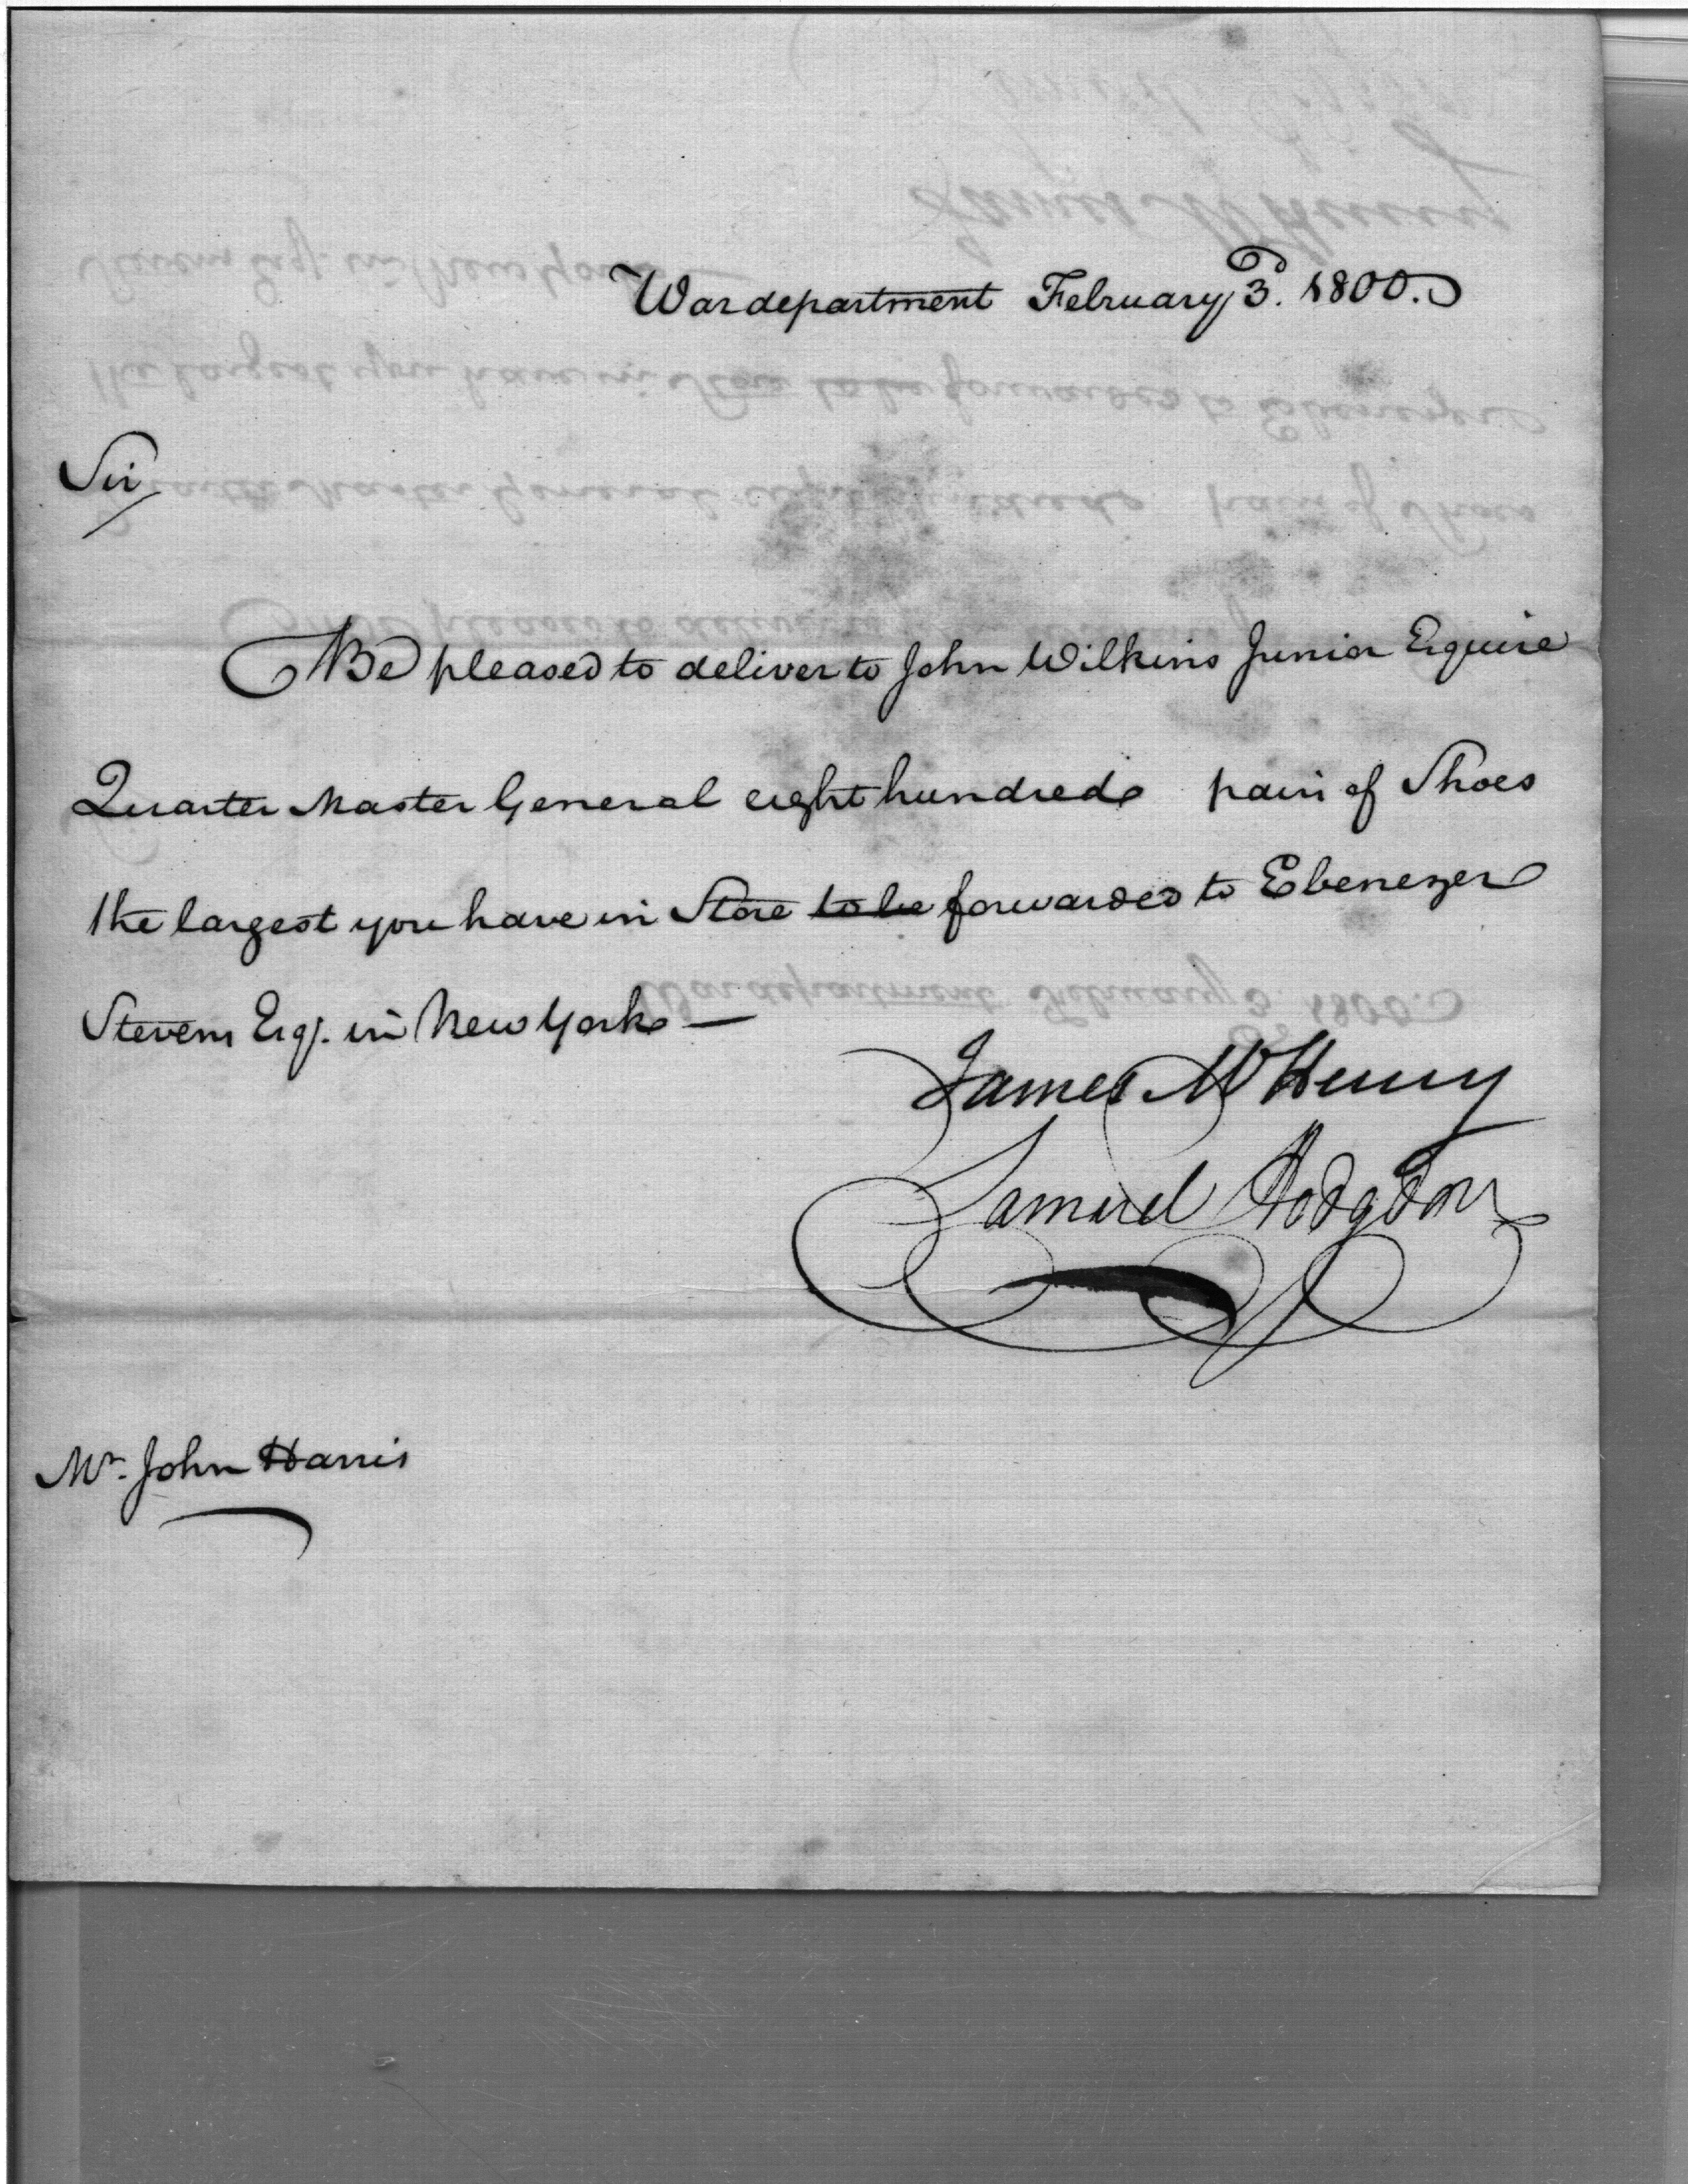 War department February 3d. 1800.
Sir
Be pleased to deliver to John Wilkins Junior Esquire
Quarter Master General eight hundred pair of Shoes
the largest you have in Store to be forwarded to Ebenezer
Stevens Esqr. in New York —
James McHenry
Samuel Hodgdon
Mr. John Harris